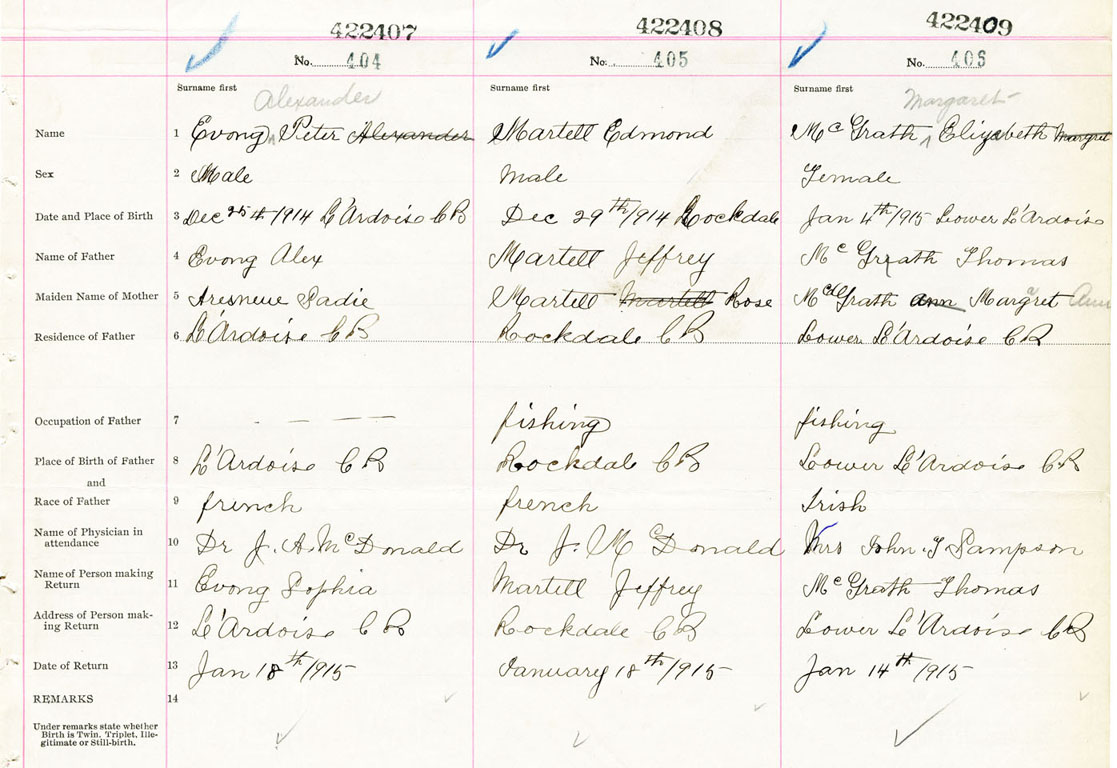 422407 422408 422409
No. 404 No. 405 No. 406
Surname first Surname first Surname first
Alexander Margaret
Name 1 Evong ^ Peter Alexander Martell Edmond McGrath ^ Elizabeth Margret
Sex 2 Male Male Female
Date and Place of Birth 3 Dec 25th/1914 L'Ardoise CB Dec 29th/1914 Rockdale Jan 4th/1915 Lower L'Ardoise
Name of Father 4 Evong Alex Martell Jeffrey McGrath Thomas
Maiden Name of Mother 5 Sadie Martell Martell Rose McGrath Ann Margaret Ann
Residence of Father 6 L'Ardoise CB Rockdale CB Lower L'Ardoise CB
Occupation of Father 7 — — fishing fishing
Place of Birth of Father 8 L'Ardoise CB Rockdale CB Lower L'Ardoise CB
and
Race of Father 9 french french Irish
Name of Physician in
attendance 10 Dr J. A. McDonald Dr J. McDonald Mrs John J Sampson
Name of Person making
Return 11 Evong Sophia Martell Jeffrey McGrath Thomas
Address of Person mak-
ing Return 12 L'Ardoise CB Rockdale CB Lower L'Ardoise CB
Date of Return 13 Jan 18th/1915 January 18th/1915 Jan 14th/1915
REMARKS 14
Under remarks state whether
Birth is Twin, Triplet, Ille-
gitimate or Still-birth.